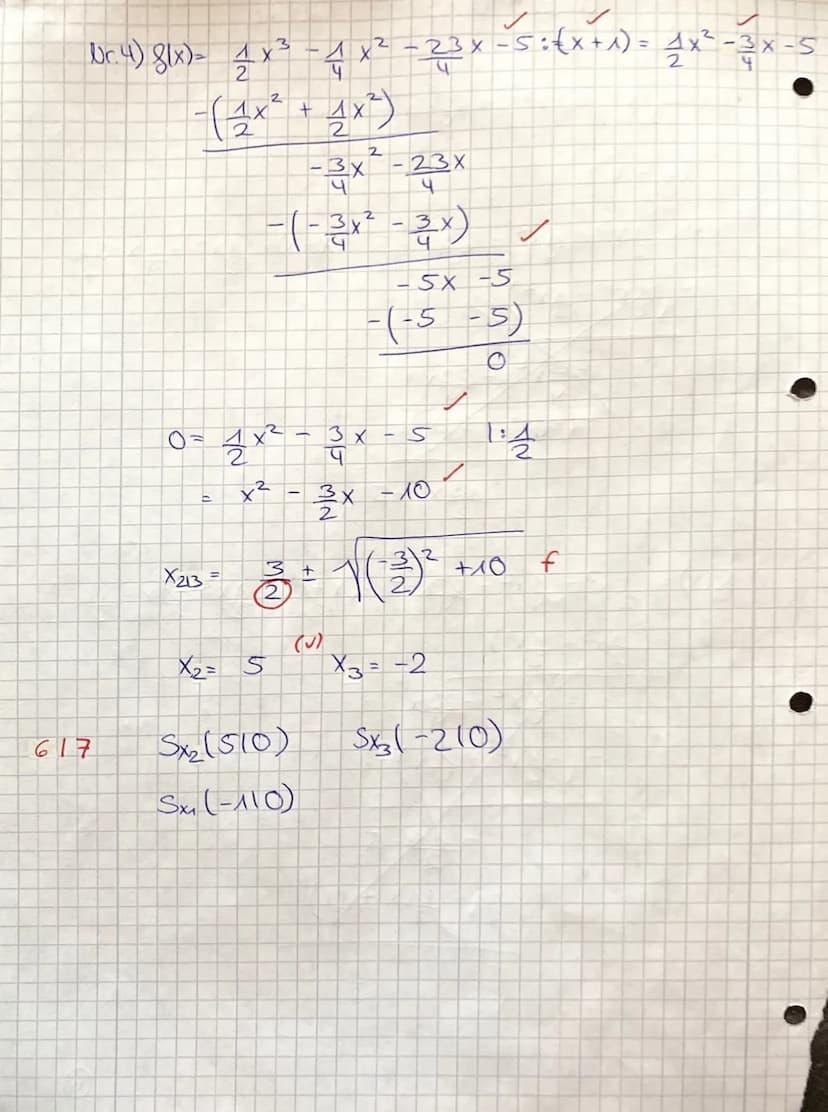 Nr.4) f(x)= 1/2 x³ - 1/4 x² - 23/4 x - 5 : (x + 1) = 1/2 x² - 3/4 x - 5
-(1/2 x² + 1/2 x²)
- 3/4 x² - 23/4 x
-(- 3/4 x² - 3/4 x) ✓
- 5x - 5
-(-5 - 5)
0
0 = 1/2 x² - 3/4 x - 5 |: 1/2 ✓
= x² - 3/2 x - 10 ✓
x2/3 = 3/2 ± √((-3/2)² + 10) f
x₂ = 5 (✓) x₃ = -2
6/7 Sx₂(5|0) Sx₃(-2|0)
Sx₁(-1|0)